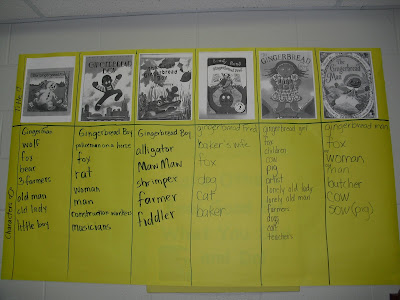 Title
GINGERBREAD
BOY
Gingerbread Boy
GINGERBREAD
The
Gingerbread
Man
Characters
wolf
fox
bear
3 farmers
old man
old lady
little boy
Gingerbread Boy
policeman on a horse
fox
rat
woman
man
construction workers
musicians
Gingerbread Boy
alligator
Maw Maw
shrimper
farmer
fiddler
gingerbread
baker's wife
fox
dog
cat
baker
gingerbread girl
fox
children
cow
pig
artist
lonely old lady
lonely old man
farmers
dogs
teachers
gingerbread man
fox
woman
man
butcher
cow
sow (pig)